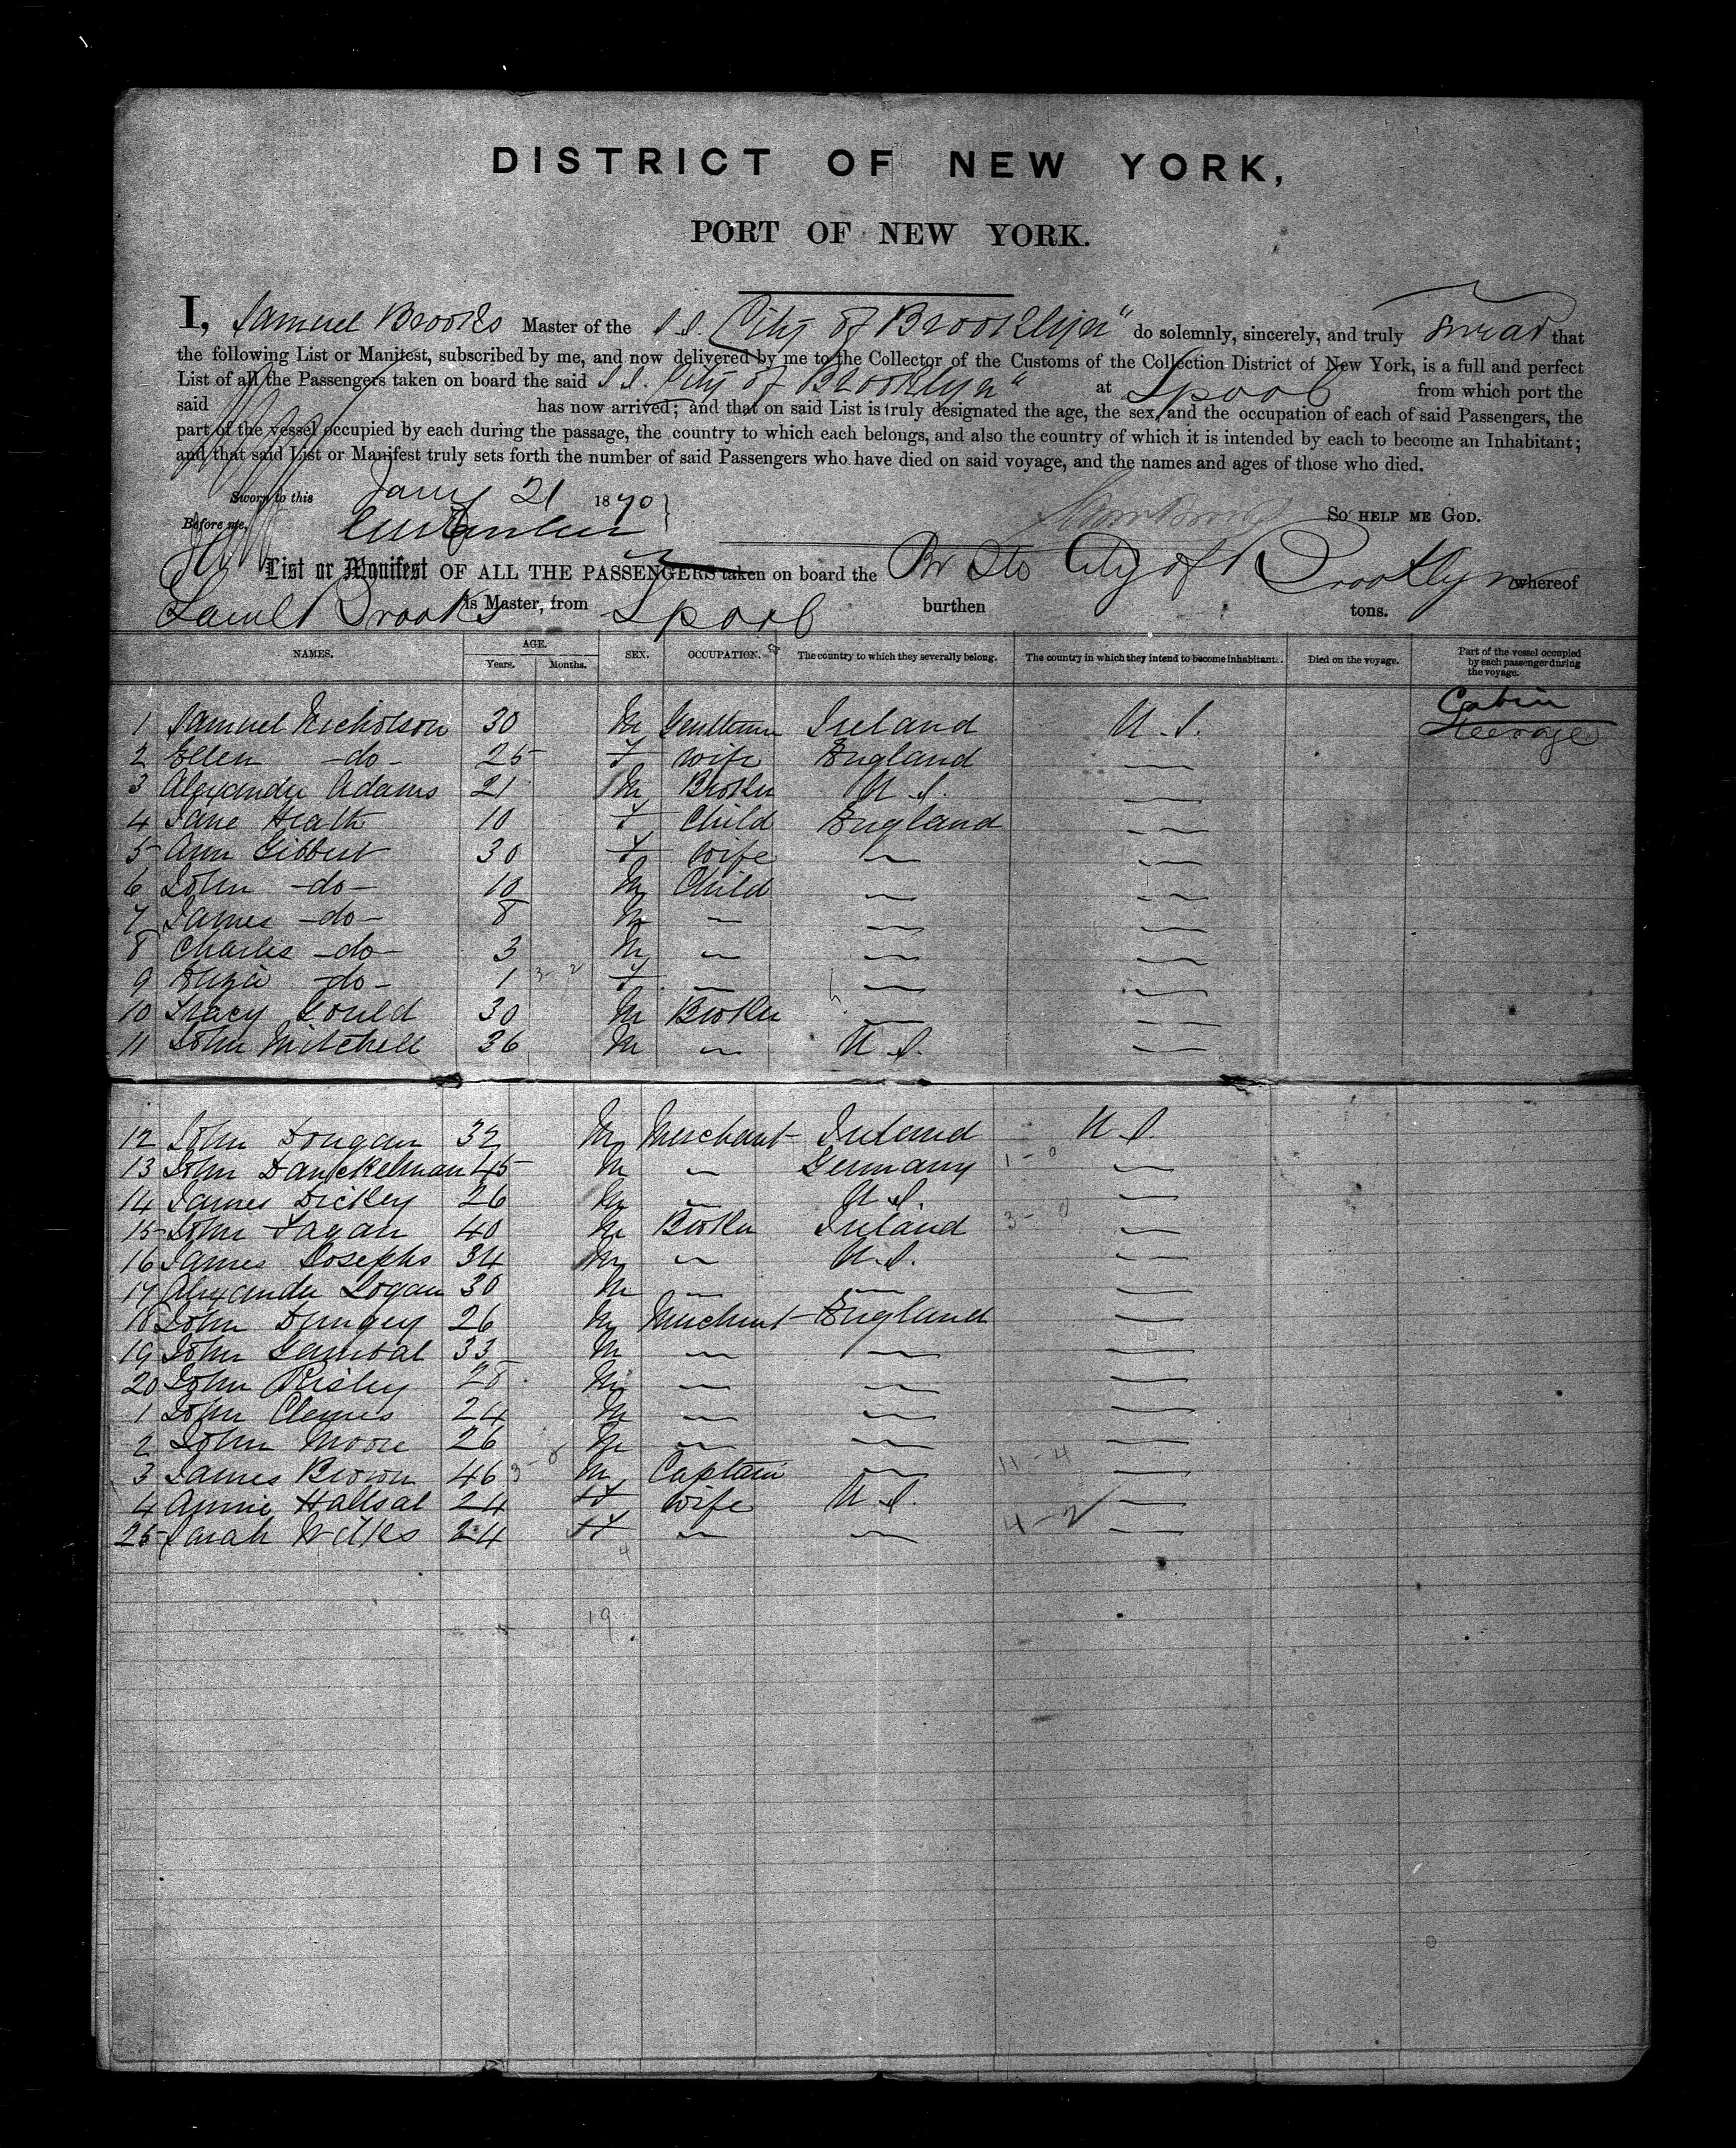 DISTRICT OF NEW YORK,
PORT OF NEW YORK.
I, Samuel Brooks Master of the S.S. "City of Brooklyn" do solemnly, sincerely, and truly swear that
the following List or Manifest, subscribed by me, and now delivered by me to the Collector of the Customs of the Collection District of New York, is a full and perfect
List of all the Passengers taken on board the said S.S. "City of Brooklyn" at Lpool from which port the
said has now arrived; and that on said List is truly designated the age, the sex, and the occupation of each of said Passengers, the
part of the vessel occupied by each during the passage, the country to which each belongs, and also the country of which it is intended by each to become an Inhabitant;
and that said List or Manifest truly sets forth the number of said Passengers who have died on said voyage, and the names and ages of those who died.
Sworn to this Jany 21 1870
Before me,
So HELP ME GOD.
List or Manifest OF ALL THE PASSENGERS taken on board the Br Str City of Brooklyn whereof
Saml Brooks is Master, from Lpool burthen tons.
NAMES. AGE. Years. Months. SEX. OCCUPATION. The country to which they severally belong. The country in which they intend to become inhabitants. Died on the voyage. Part of the vessel occupied by each passenger during the voyage.
Cabin
1 Samuel Nicholson 30 M Gentleman Ireland U.S. Steerage
2 Ellen -do- 25 F Wife England —
3 Alexander Adams 21 M Broker U.S. —
4 Jane Heath 10 F Child England —
5 Ann Gibbert 30 F Wife — —
6 John -do- 10 M Child — —
7 James -do- 8 M — — —
8 Charles -do- 3 M — — —
9 Eliza -do- 1 F — — —
10 Tracy Gould 30 M Broker — —
11 John Mitchell 36 M — U.S. —
12 John Dougan 32 M Merchant Ireland U.S.
13 John Danckelman 45 M — Germany 1-0 —
14 James Dickey 26 M — U.S. —
15 John Fagan 40 M Broker Ireland 3-0 —
16 James Josephs 34 M — U.S. —
17 Alexander Logan 30 M — — —
18 John Dungey 26 M Merchant England —
19 John Gambal 33 M — — —
20 John Risley 28 M — — —
1 John Clemes 24 M — — —
2 John Moore 26 M — — —
3 James Brown 46 M Captain — 11 4 —
4 Annie Hallsal 24 F Wife U.S. —
25 Sarah Wilks 24 F — — 4-2 —
4
19